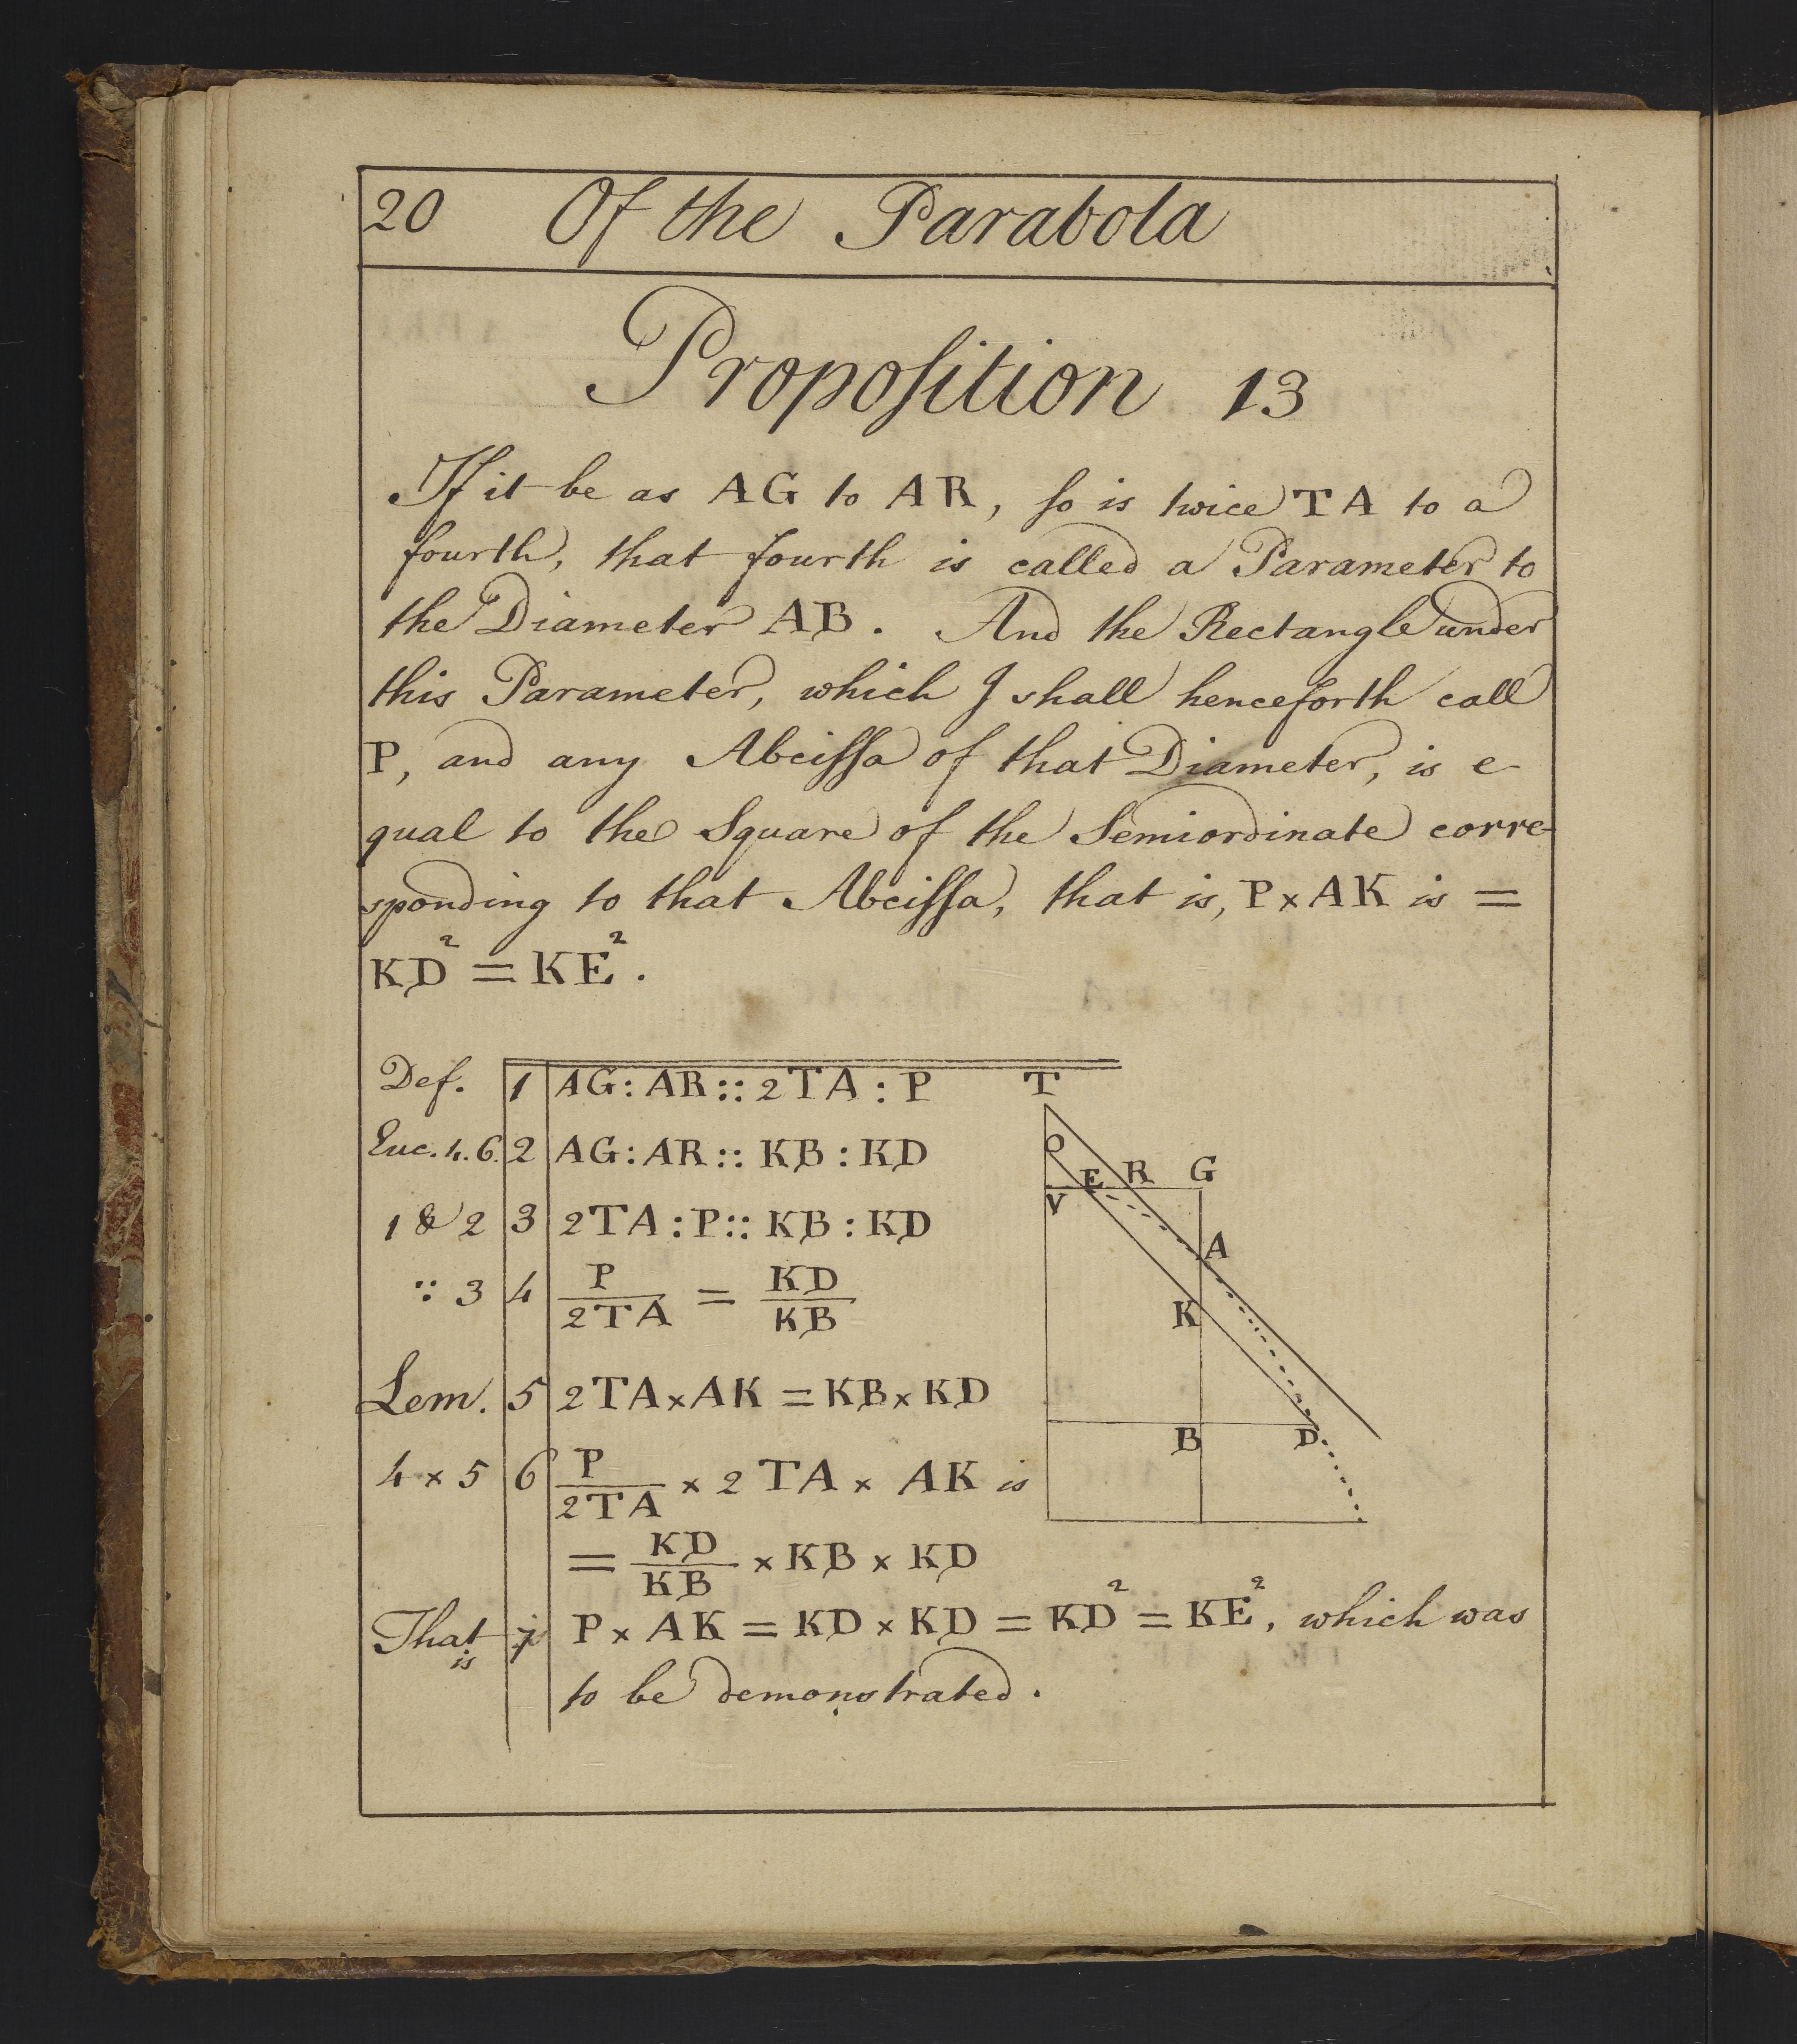 20 Of the Parabola
Propoſition 13
If it be as AG to AR, ſo is twice TA to a
fourth, that fourth is called a Parameter to
the Diameter AB. And the Rectangle under
this Parameter, which I shall henceforth call
P, and any Abciſſa of that Diameter, is e-
qual to the Square of the Semiordinate corre-
sponding to that Abciſſa, that is, P × AK is =
KD² = KE².
Def. 1 AG : AR :: 2TA : P
Euc. 4. 6. 2 AG : AR :: KB : KD
1 & 2 3 2TA : P :: KB : KD
∵ 3 4 P/2TA = KD/KB
Lem. 5 2TA × AK = KB × KD
4 × 5 6 P/2TA × 2TA × AK is
= KD/KB × KB × KD
That is 7 P × AK = KD × KD = KD² = KE², which was
to be demonstrated.
T
O
E R G
V
A
K
B D